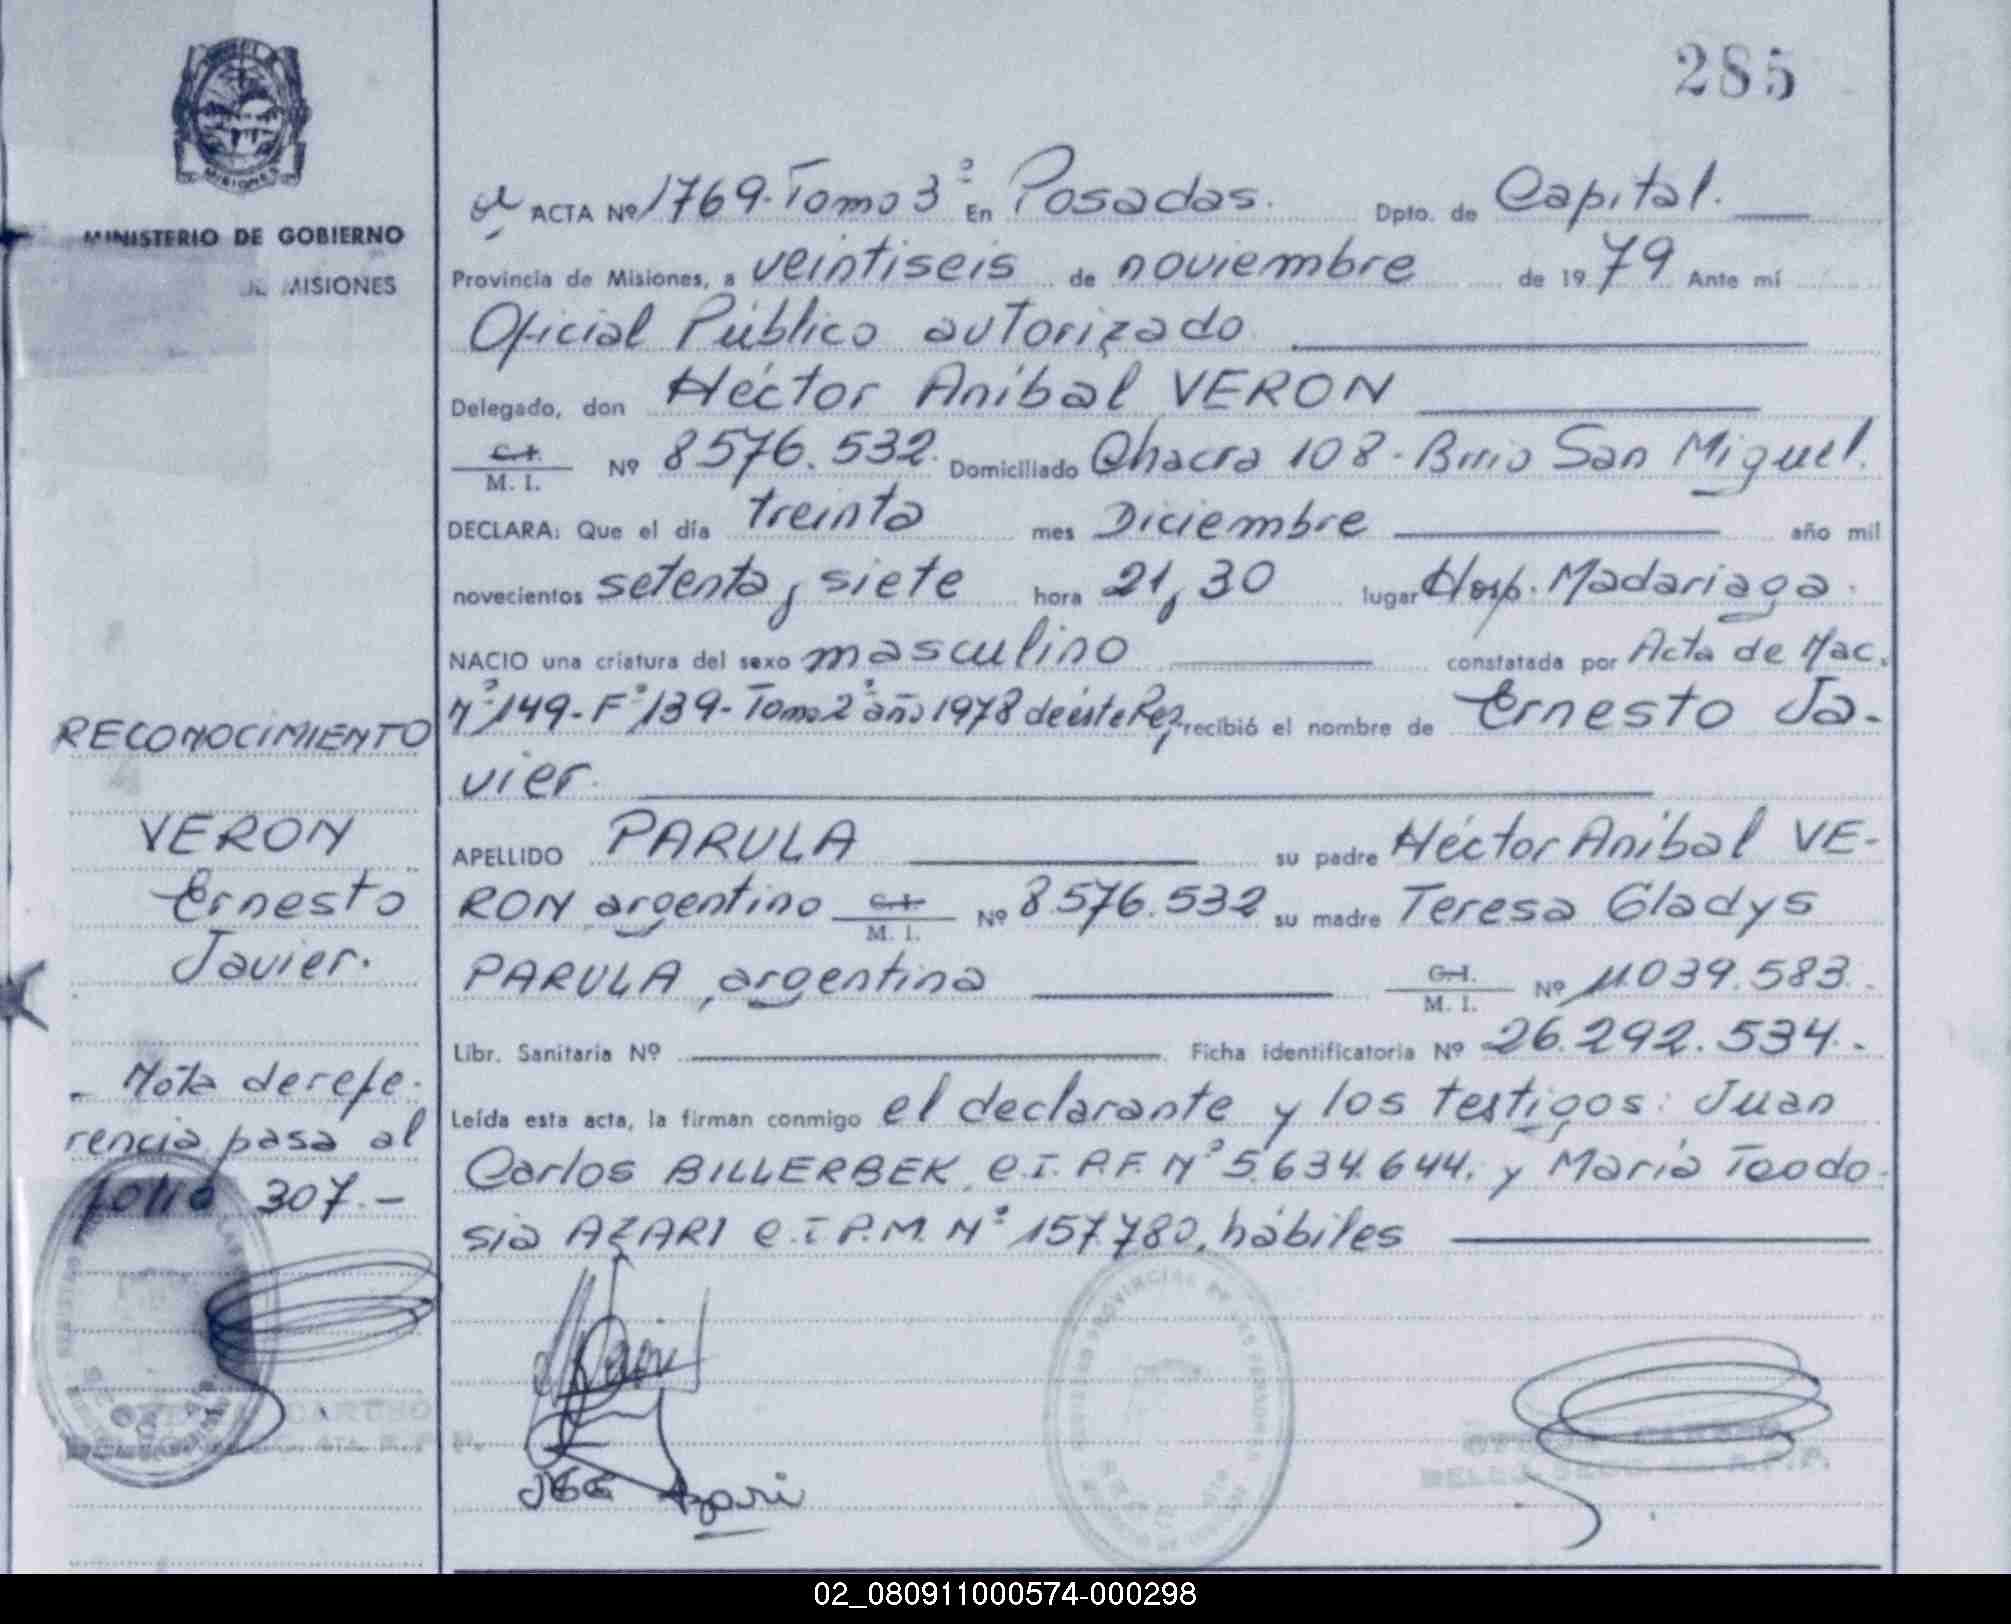 285
MISIONES
MINISTERIO DE GOBIERNO
MISIONES
ACTA Nº 1769-Tomo 3º En Posadas. Dpto. de Capital.
Provincia de Misiones, a veintiseis de noviembre de 1979 Ante mí
Oficial Público autorizado
Delegado, don Héctor Aníbal VERON
C.I. M. I. Nº 8576.532. Domiciliado Chacra 108-Brrio San Miguel.
DECLARA: Que el día treinta mes Diciembre año mil
novecientos setenta y siete hora 21,30 lugar Hosp. Madariaga.
NACIO una criatura del sexo masculino constatada por Acta de Nac.
Nº 149-Fº 139-Tomo 2º año 1978 de éste Reg. recibió el nombre de Ernesto Ja-
vier.
APELLIDO PARULA su padre Héctor Aníbal VE-
RON argentino C.I. M. I. Nº 8.576.532 su madre Teresa Gladys
PARULA, argentina C.I. M. I. Nº 11.039.583.
Libr. Sanitaria Nº Ficha identificatoria Nº 26.292.534.-
Leída esta acta, la firman conmigo el declarante y los testigos: Juan
Carlos BILLERBEK, C.I. P.F. Nº 5.634.644. y María Teodo-
sia AZARI C.I. P.M. Nº 157.780, hábiles
RECONOCIMIENTO
VERON
Ernesto
Javier.
- Nota de refe-
rencia pasa al
folio 307.-
Azari
02_080911000574-000298